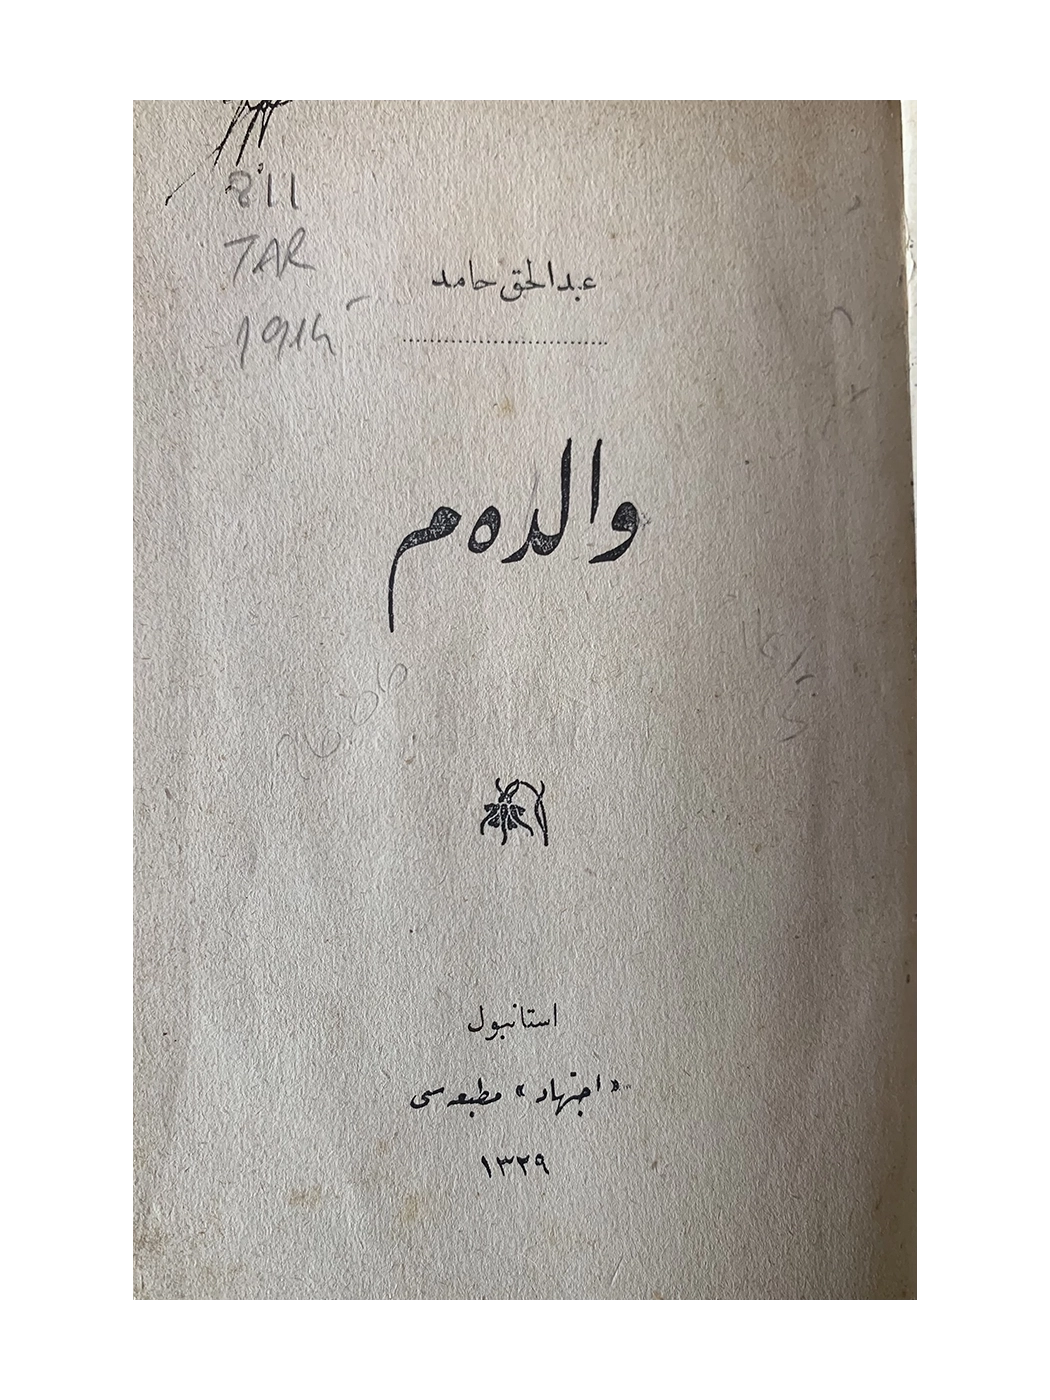 811
TAR
1914
عبدالحق حامد
والده‌م
استانبول
« اجتهاد » مطبعه‌سی
١٣٢٩